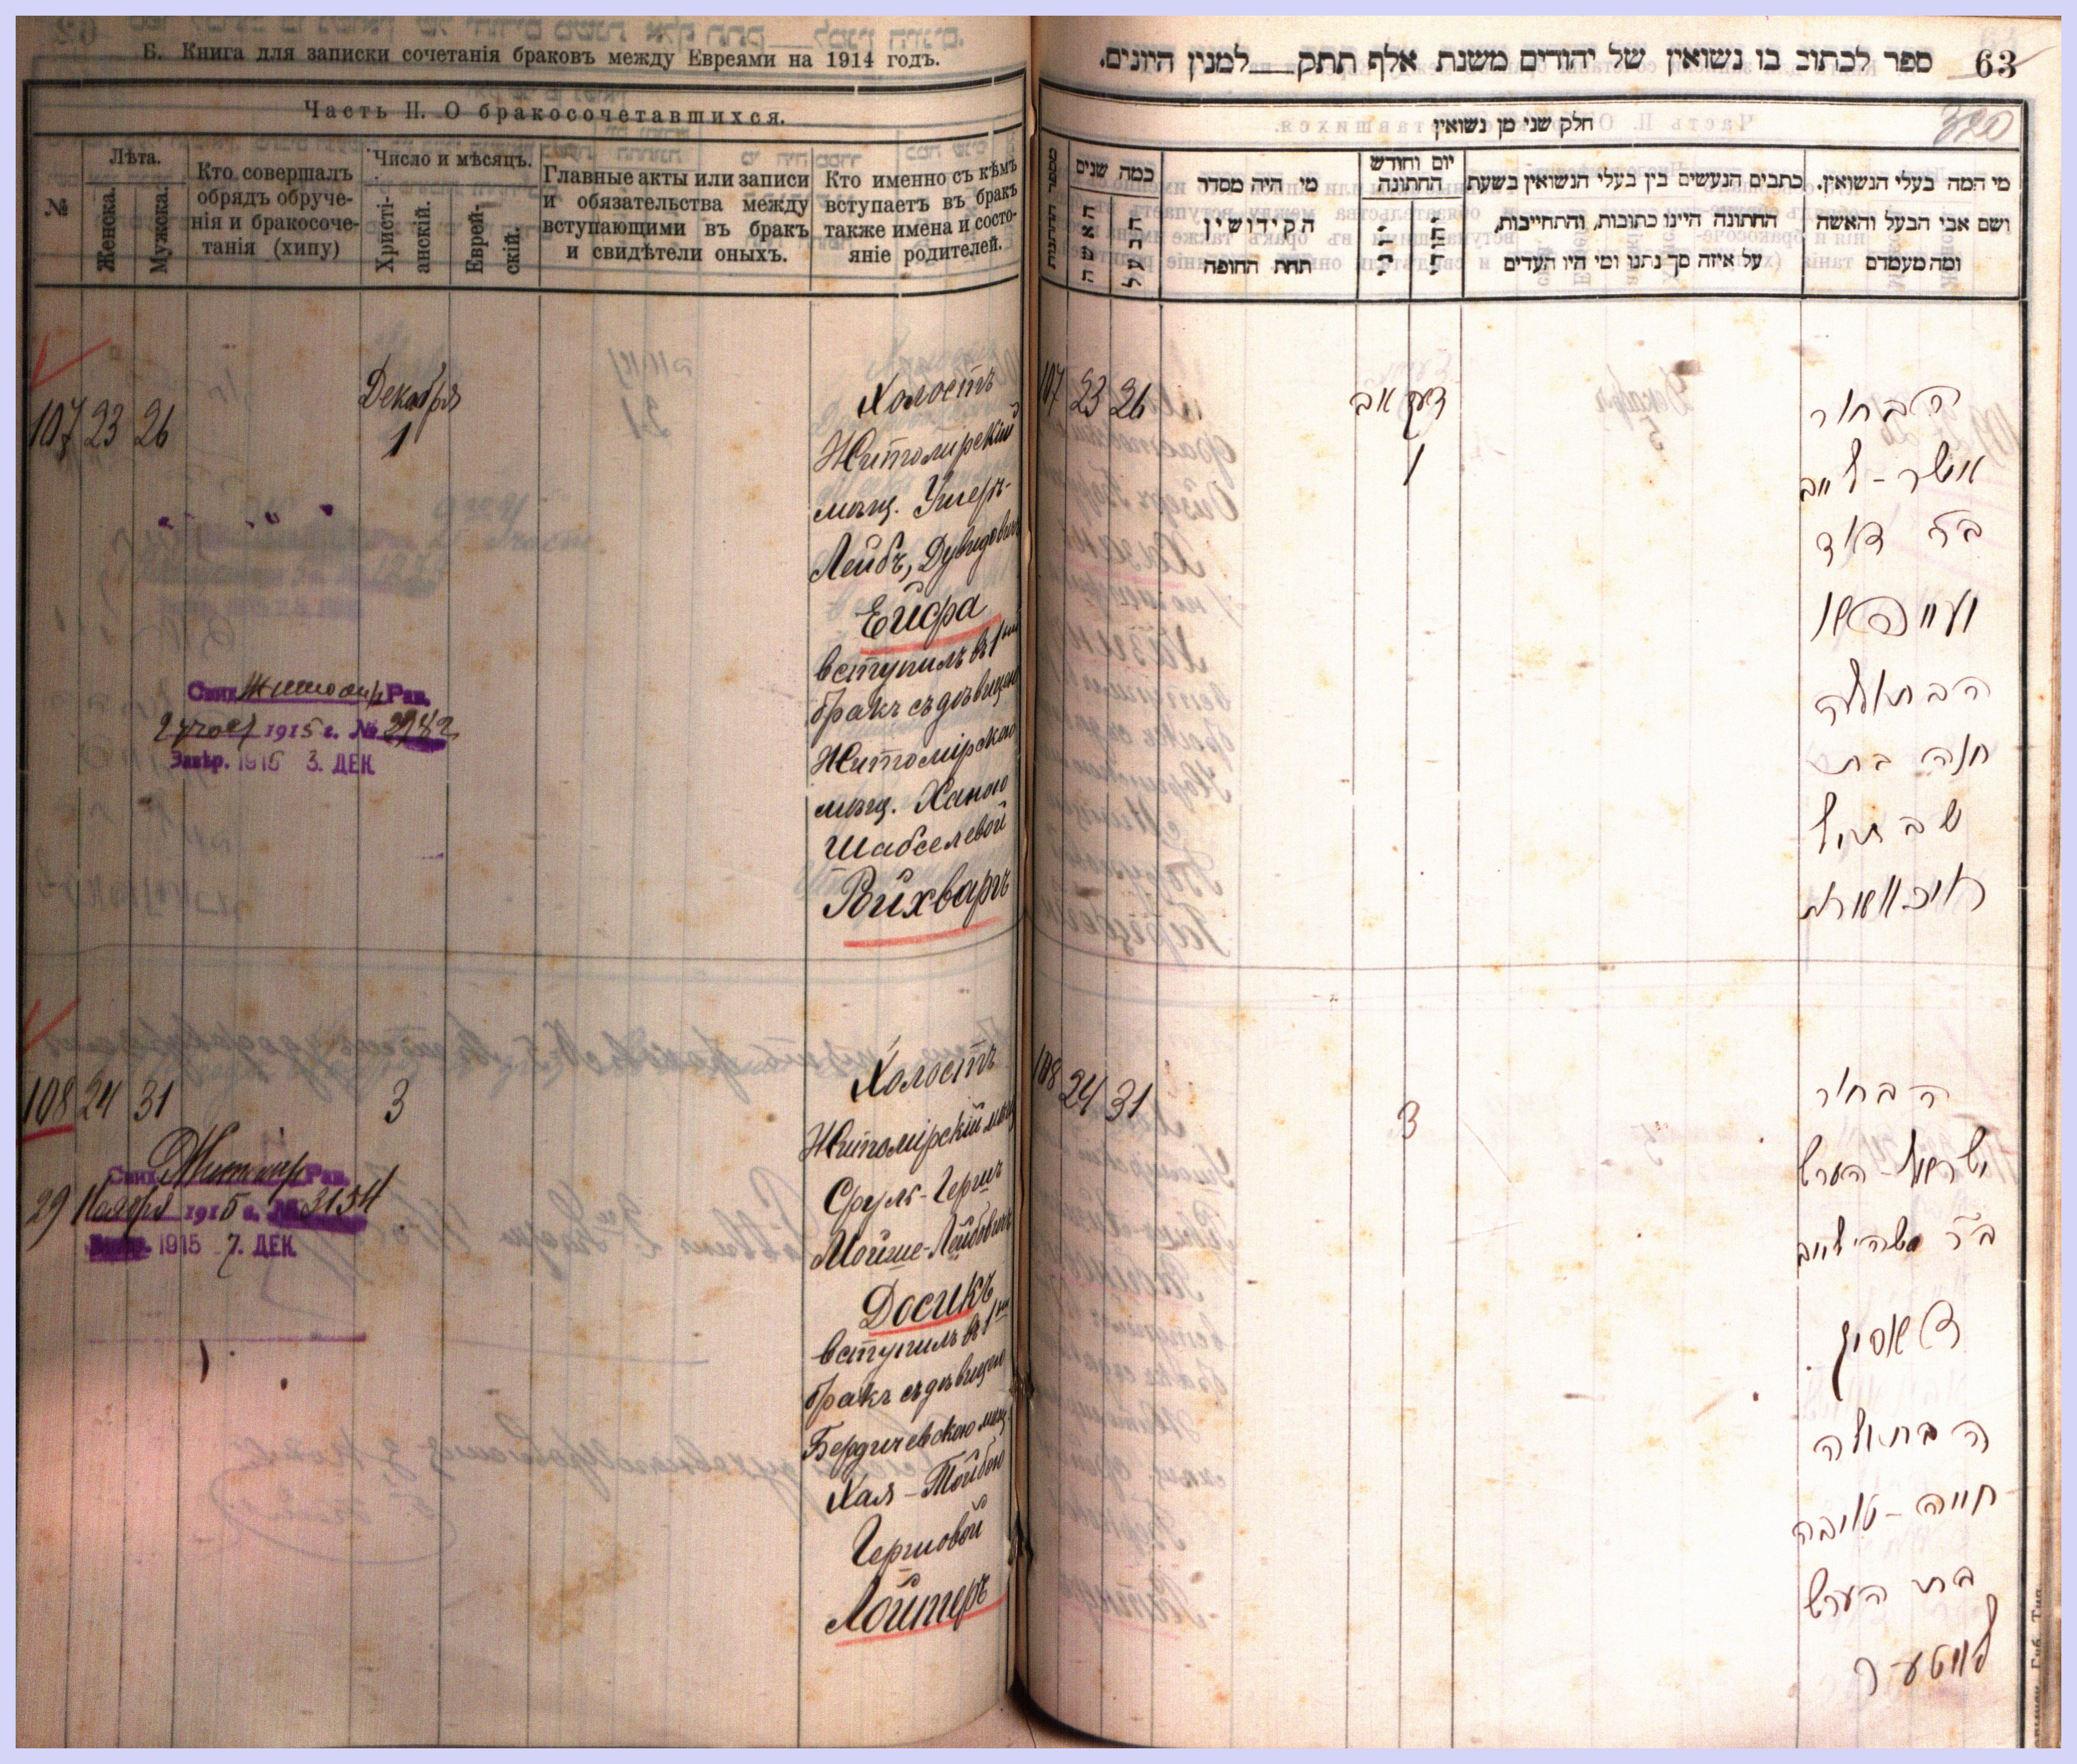 Б. Книга для записки сочетанія браковъ между Евреями на 1914 годъ.
Часть II. О бракосочетавшихся.
№
Лѣта.
Женска.
Мужска.
Кто совершалъ
обрядъ обруче-
нія и бракосоче-
танія (хипу)
Число и мѣсяцъ.
Христі-
анскій.
Еврей-
скій.
Главные акты или записи
и обязательства между
вступающими въ бракъ
и свидѣтели оныхъ.
Кто именно съ кѣмъ
вступаетъ въ бракъ
также имена и состо-
яніе родителей.
107 23 26
Декабря
1
Холостъ
Житомірскій
мѣщ. Ушеръ-
Лейбъ, Дувидовичъ
Ейфра
вступилъ въ 1ый
бракъ съ дѣвицею
Житомірскою
мѣщ. Ханою
Шабселевой
Войхваръ
Свид. Житомір. Рав.
1915 г. №
Завѣр. 1915 3. ДЕК.
108 24 31
3
Холостъ
Житомірскій мѣщ
Сруль-Гершъ
Мойше-Лейбовичъ
Досикъ
вступилъ въ 1ый
бракъ съ дѣвицею
Бердичевскою мѣщ.
Хая-Тойбою
Гершовой
Лойтеръ
Свид. Житомір Рав.
29 Ноября 1915 г. № 3134
Завѣр. 1915 7. ДЕК.
ספר לכתוב בו נשואין של יהודים משנת אלף תתק___למנין היונים.
63
320
חלק שני מן נשואין
מספר החתונות
כמה שנים
האשה
הבעל
מי היה מסדר
הקידושין
תחת החופה
יום וחודש
החתונה
כתבים הנעשים בין בעלי הנשואין בשעת
החתונה היינו כתובות, והתחייבות,
על איזה סך נתנו ומי היו העדים
מי המה בעלי הנשואין.
ושם אבי הבעל והאשה
ומה מעמדם
107 23 26
דעקאב
1
הבחור
אושר-לייב
ב״ר דוד
הבתולה
חנה בת
שבתיל
108 24 31
3
הבחור
ישראל-הערש
ב״ר משה לייב
דאסיק
הבתולה
חייה-טויבה
בת הערש
לויטער